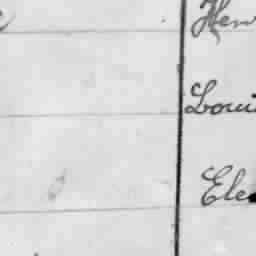 Hen
Loui
Ele